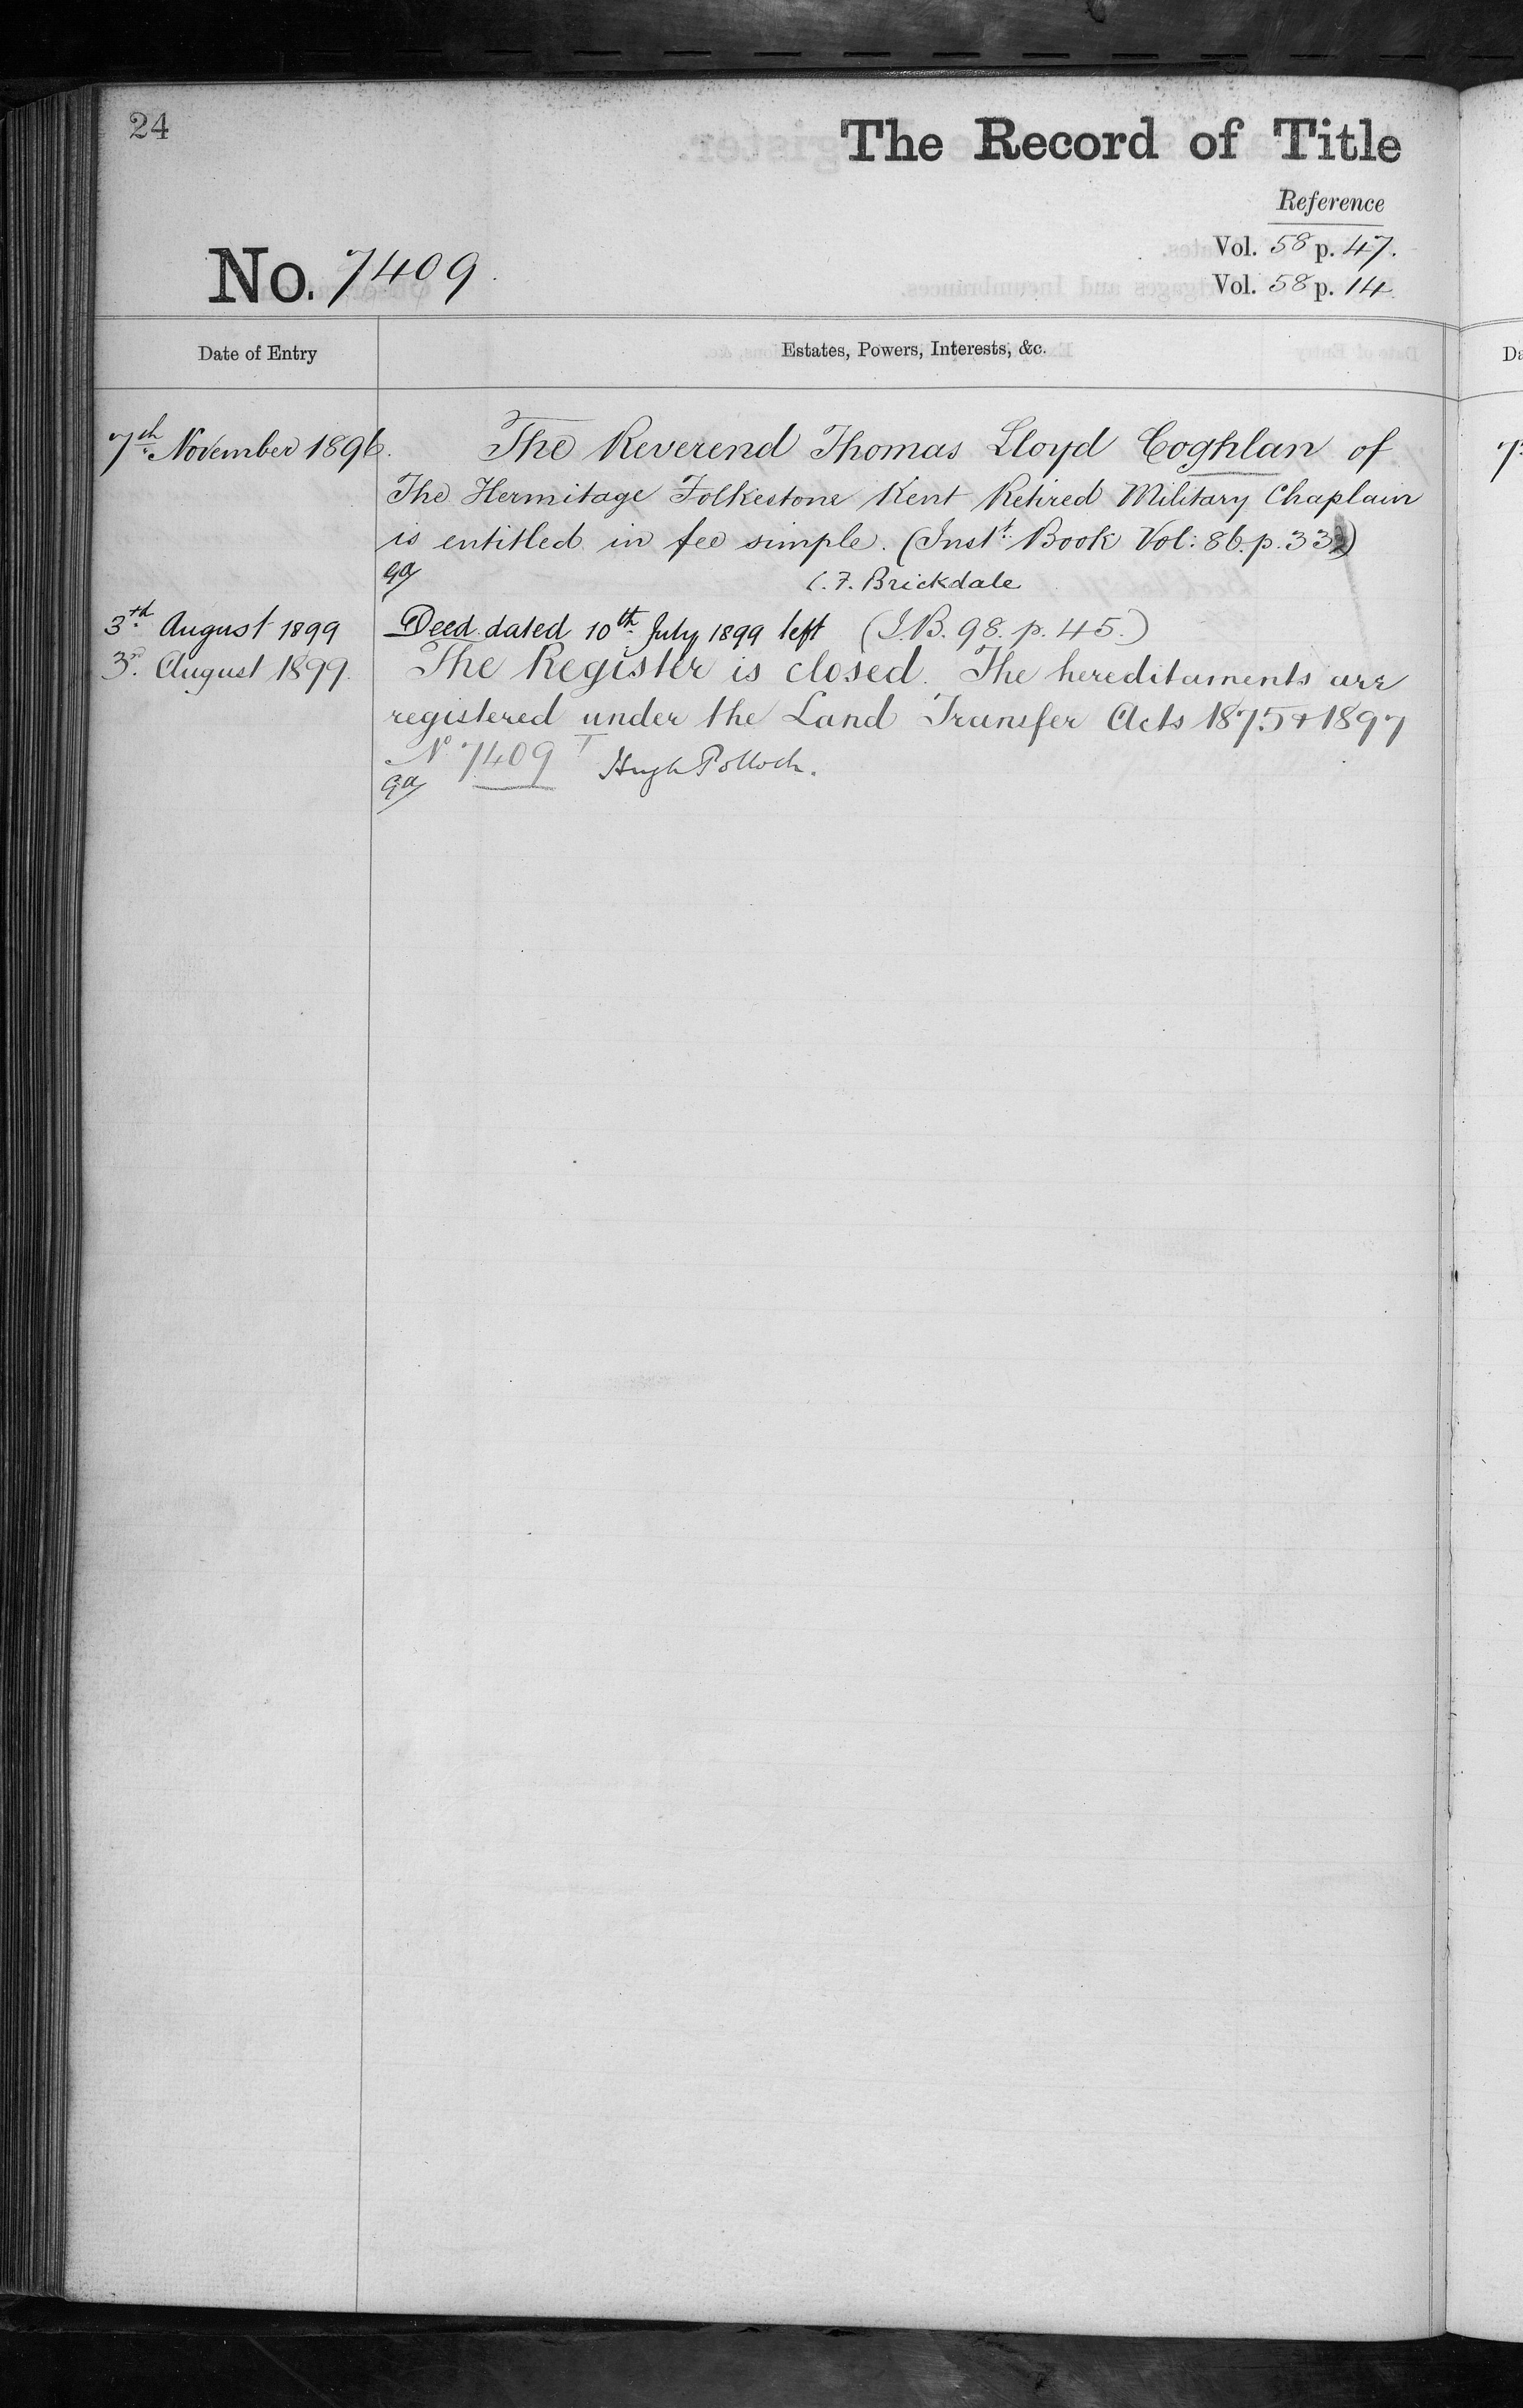 24
The Record of Title
Reference
Vol. 58 p. 47.
No. 7409.
Vol. 58 p. 14
Date of Entry
Estates, Powers, Interests, &c.
7th November 1896.
The Reverend Thomas Lloyd Coghlan of
The Hermitage Folkestone Kent Retired Military Chaplain
is entitled in fee simple. (Inst: Book Vol: 86. p. 332)
C. F. Brickdale
3rd August 1899
Deed dated 10th July 1899 left (I.B. 98. p. 45.)
3rd August 1899.
The Register is closed. The hereditaments are
registered under the Land Transfer Acts 1875 & 1897
No 7409
Hugh Pollock.